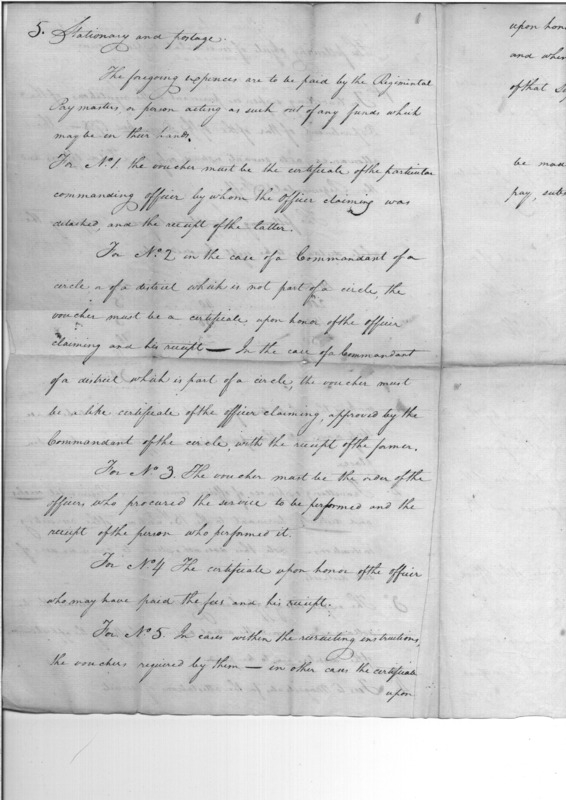 5. Stationary and postage.
The foregoing expences are to be paid by the Regimental
Paymasters, or person acting as such out of any funds which
may be in their hands.
For No. 1. the voucher must be the certificate of the particular
commanding officer by whom the officer claiming was
detached and the receipt of the latter.
For No. 2 in the case of a Commandant of a
circle or of a district which is not part of a circle, the
voucher must be a certificate upon honor of the officer
claiming and his receipt — In the case of a Commandant
of a district which is part of a circle, the voucher must
be a like certificate of the officer claiming, approved by the
Commandant of the circle, with the receipt of the former.
For No. 3. The voucher must be the order of the
officer, who procured the service to be performed and the
receipt of the person who performed it.
For No. 4 The certificate upon honor of the officer
who may have paid the fees and his receipt.
For No. 5. In cases within the recruiting instructions,
the vouchers required by them — in other cases the certificate
upon
upon hon
and whe
of that
be mad
pay, sub